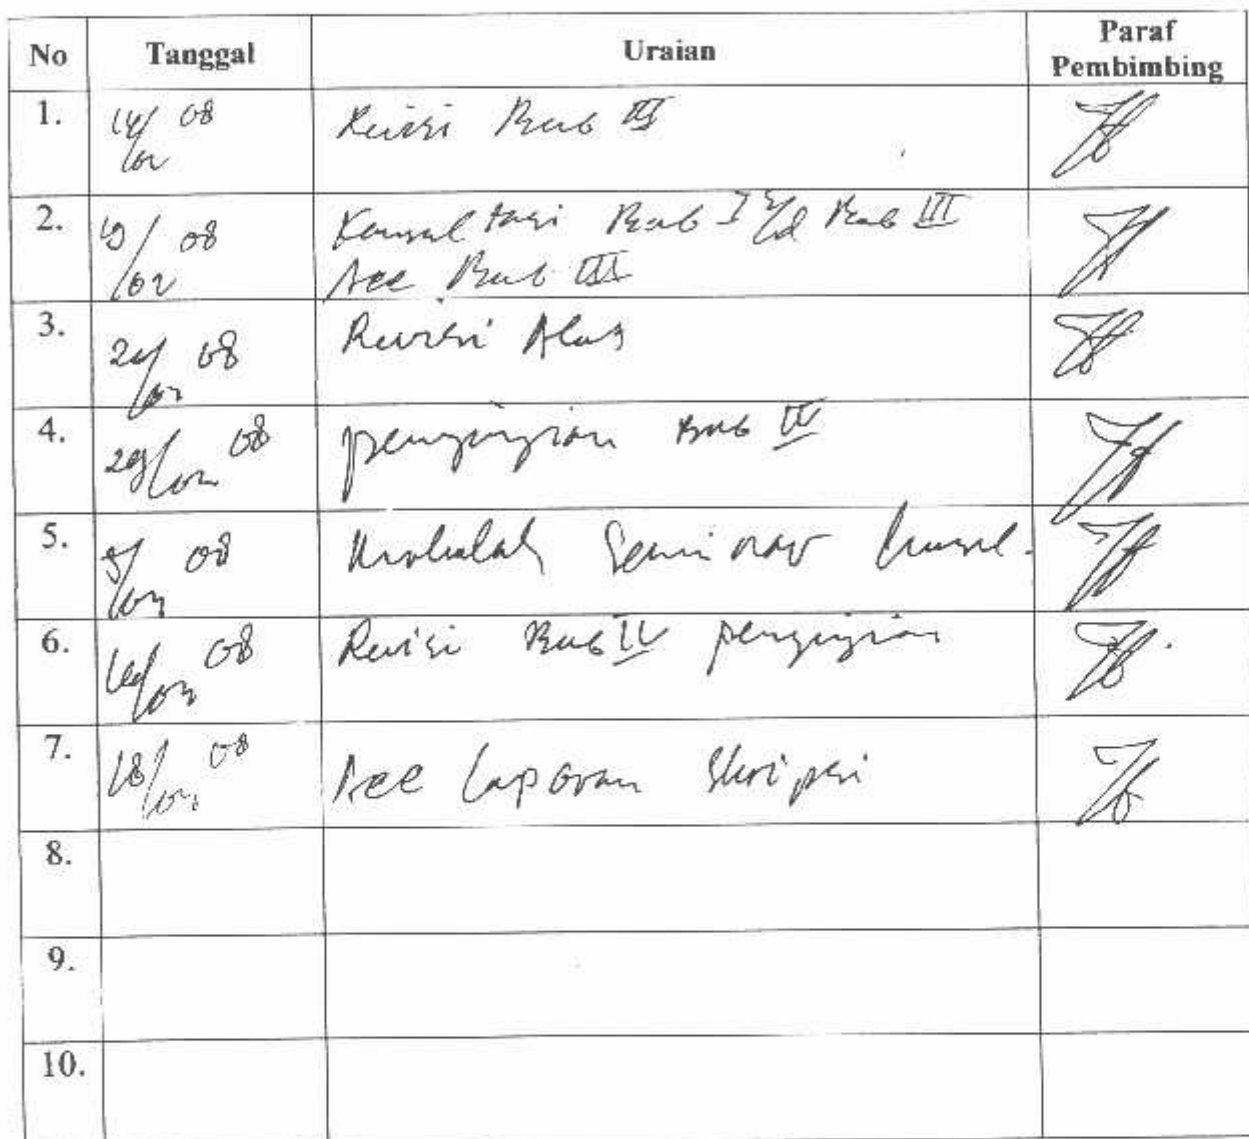 No Tanggal Uraian Paraf Pembimbing
1. 14/02 08 Revisi Bab III
2. 19/02 08 Konsultasi Bab I s/d Bab III
Acc Bab III
3. 24/02 08 Revisi Alat
4. 29/02 08 pengujian Bab IV
5. 08 Makalah Seminar
6. 08 Revisi Bab IV pengujian
7. 18/ 08 Acc Laporan Skripsi
8.
9.
10.